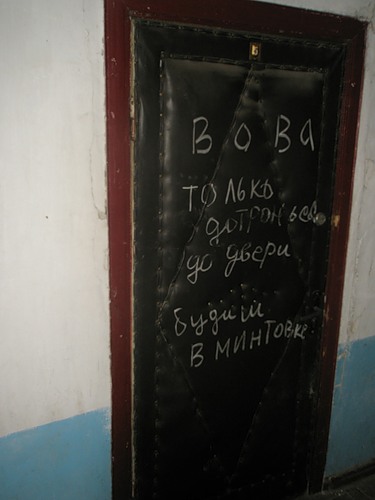 ВОВА
ТОЛЬКО
дотронься
до двери
будиш
В МИНТОВКЕ